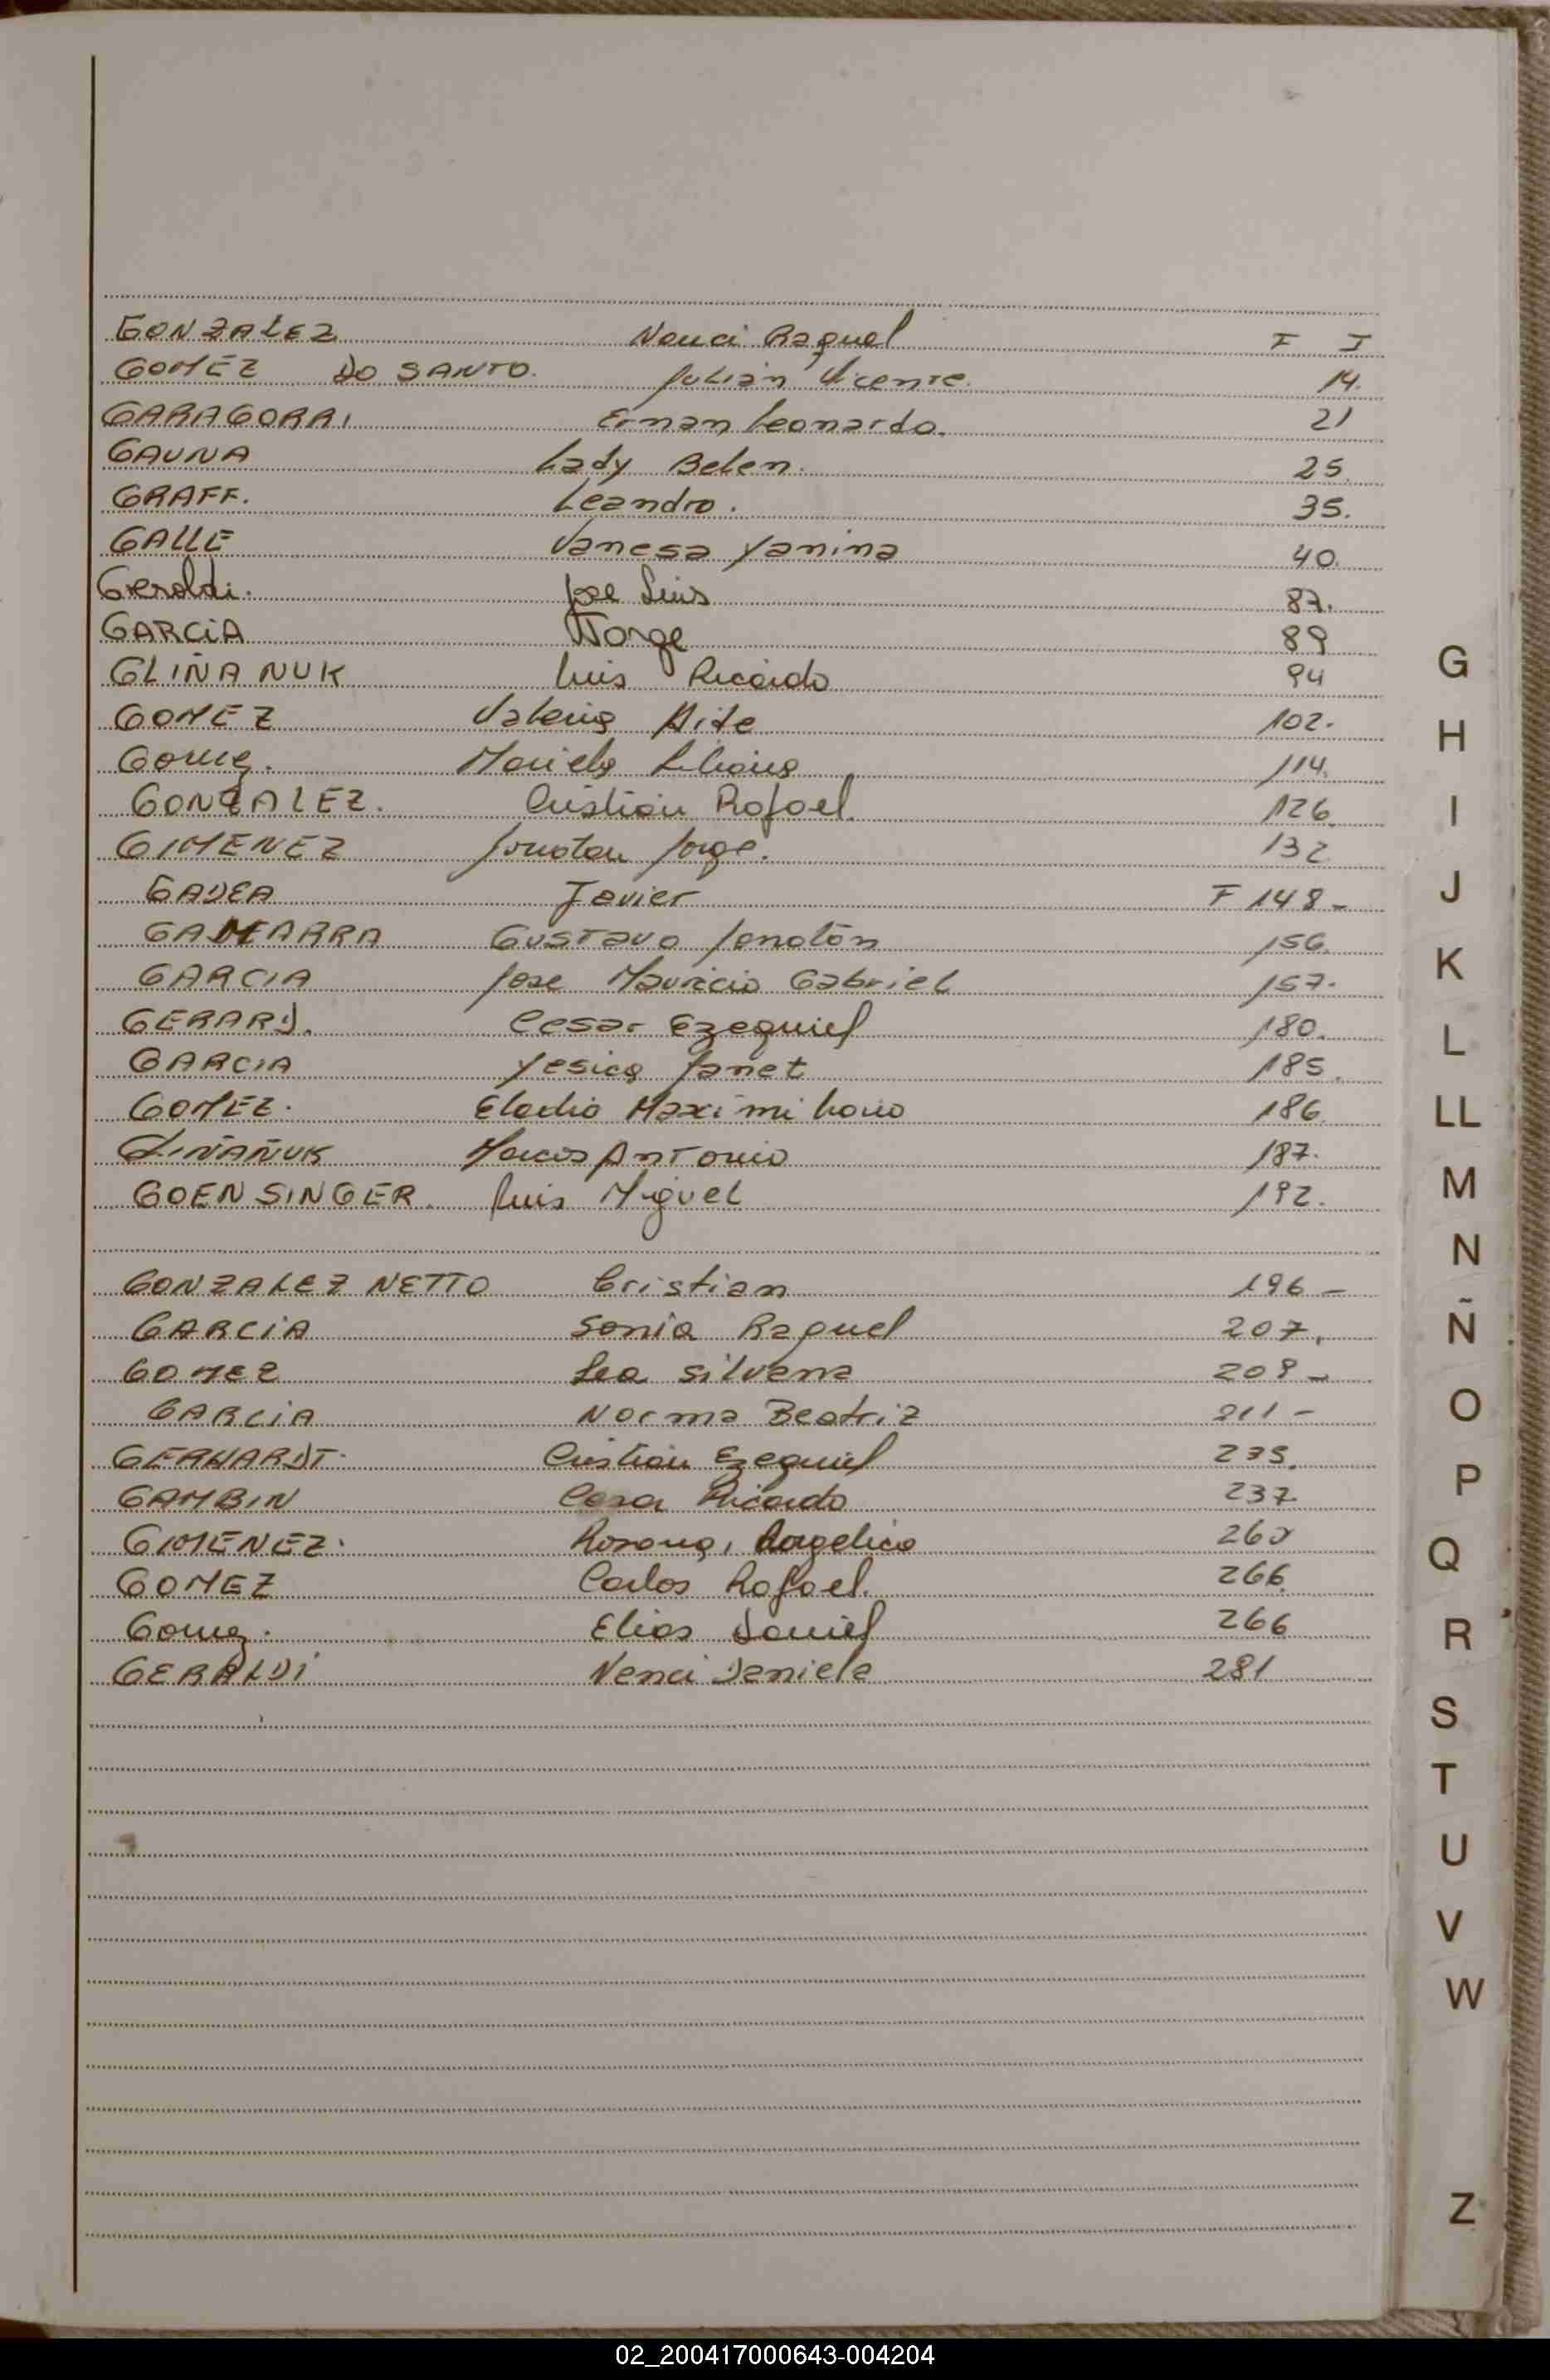 GONZALEZ Nanci Raquel F I
GOMEZ DO SANTO. Julian Vicente. 14.
GARAGORRI Erman Leonardo. 21
GAUNA Lady Belen. 25.
GRAFF. Leandro. 35.
GALLE Vanesa Yanina 40.
Geraldi. Jose Luis 87.
GARCiA Jorge 89
GLIÑANUK Luis Ricardo 94
GOMEZ Valeria Aide 102.
Gomez. Mariela Liliana 114.
GONZALEZ. Cristian Rafael. 126.
GIMENEZ Jonatan Jorge. 132
GADEA Javier F 148-
GAMARRA Gustavo Jonatan 156.
GARCIA Jose Mauricio Gabriel 157.
GERARD. Cesar Ezequiel 180.
GARCIA Yesica Janet 185.
GOMEZ. Eladio Maximiliano 186.
LIÑAÑUK Marcos Antonio 187.
GOENSINGER. Luis Miguel 192.
GONZALEZ NETTO Cristian 196-
GARCiA Sonia Raquel 207.
GOMEZ Lea Silvana 208-
GARCiA Norma Beatriz 211-
GERHARDT. Cristian Ezequiel 235.
GAMBIN Cesar Ricardo 237
GIMENEZ. Rosana, Angelica 260
GOMEZ Carlos Rafael. 266.
Gomez. Elias Daniel 266
GERALDi Nanci Daniela 281
G
H
I
J
K
L
LL
M
N
Ñ
O
P
Q
R
S
T
U
V
W
Z
02_200417000643-004204